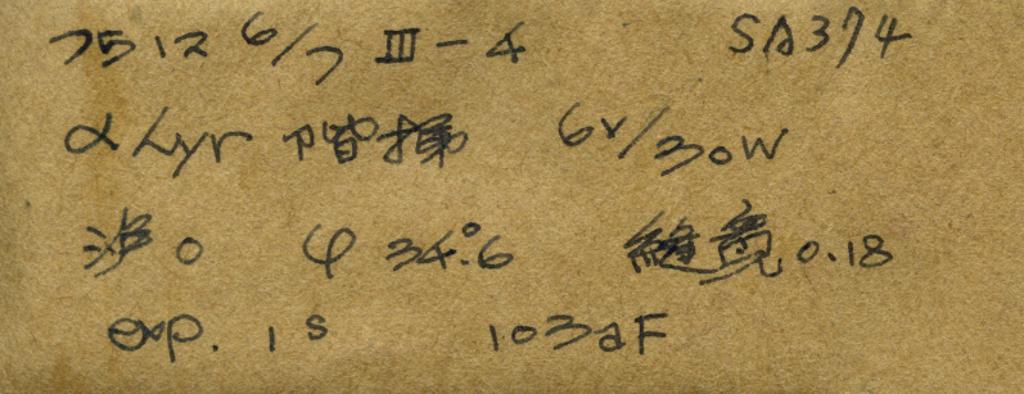 7512 6/7 III-4 SA374
α Lyr 階梯 6V/30W
滤 0 φ 34.°6 縫寬 0.18
exp. 1s 103aF